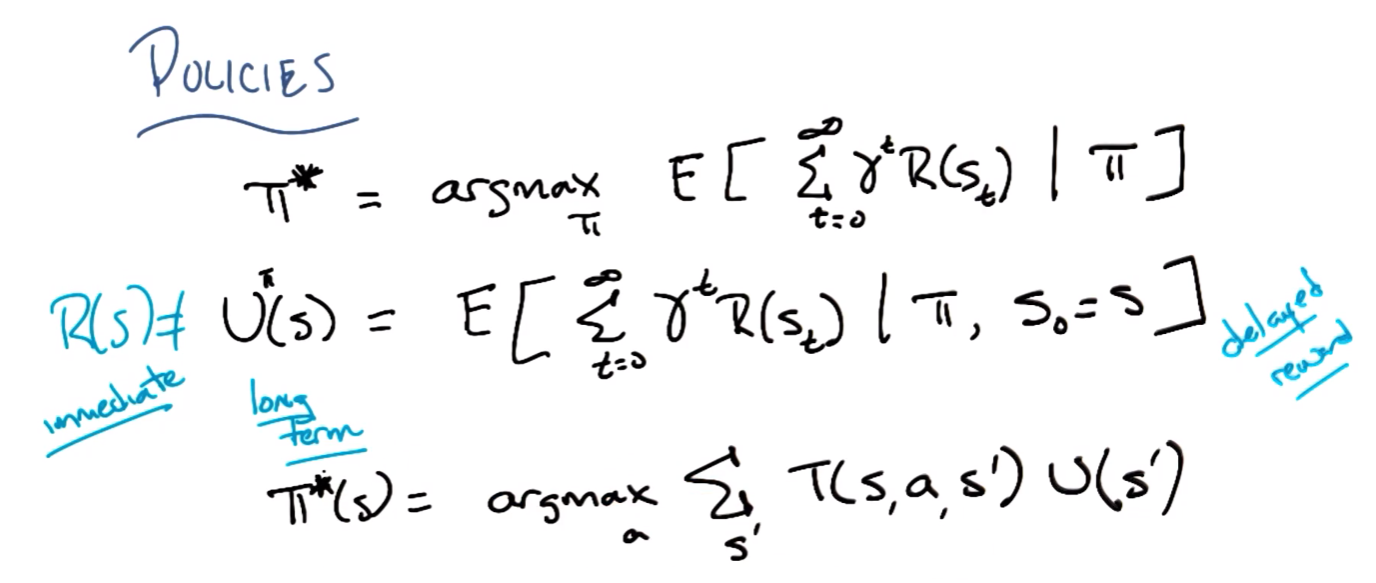 POLICIES
π* = argmax_π E[ Σ_{t=0}^{∞} γ^t R(s_t) | π ]
R(s) ≠ U^π(s) = E[ Σ_{t=0}^{∞} γ^t R(s_t) | π, s_0 = s ]
immediate
long term
delayed reward
π*(s) = argmax_a Σ_{s'} T(s,a,s') U(s')